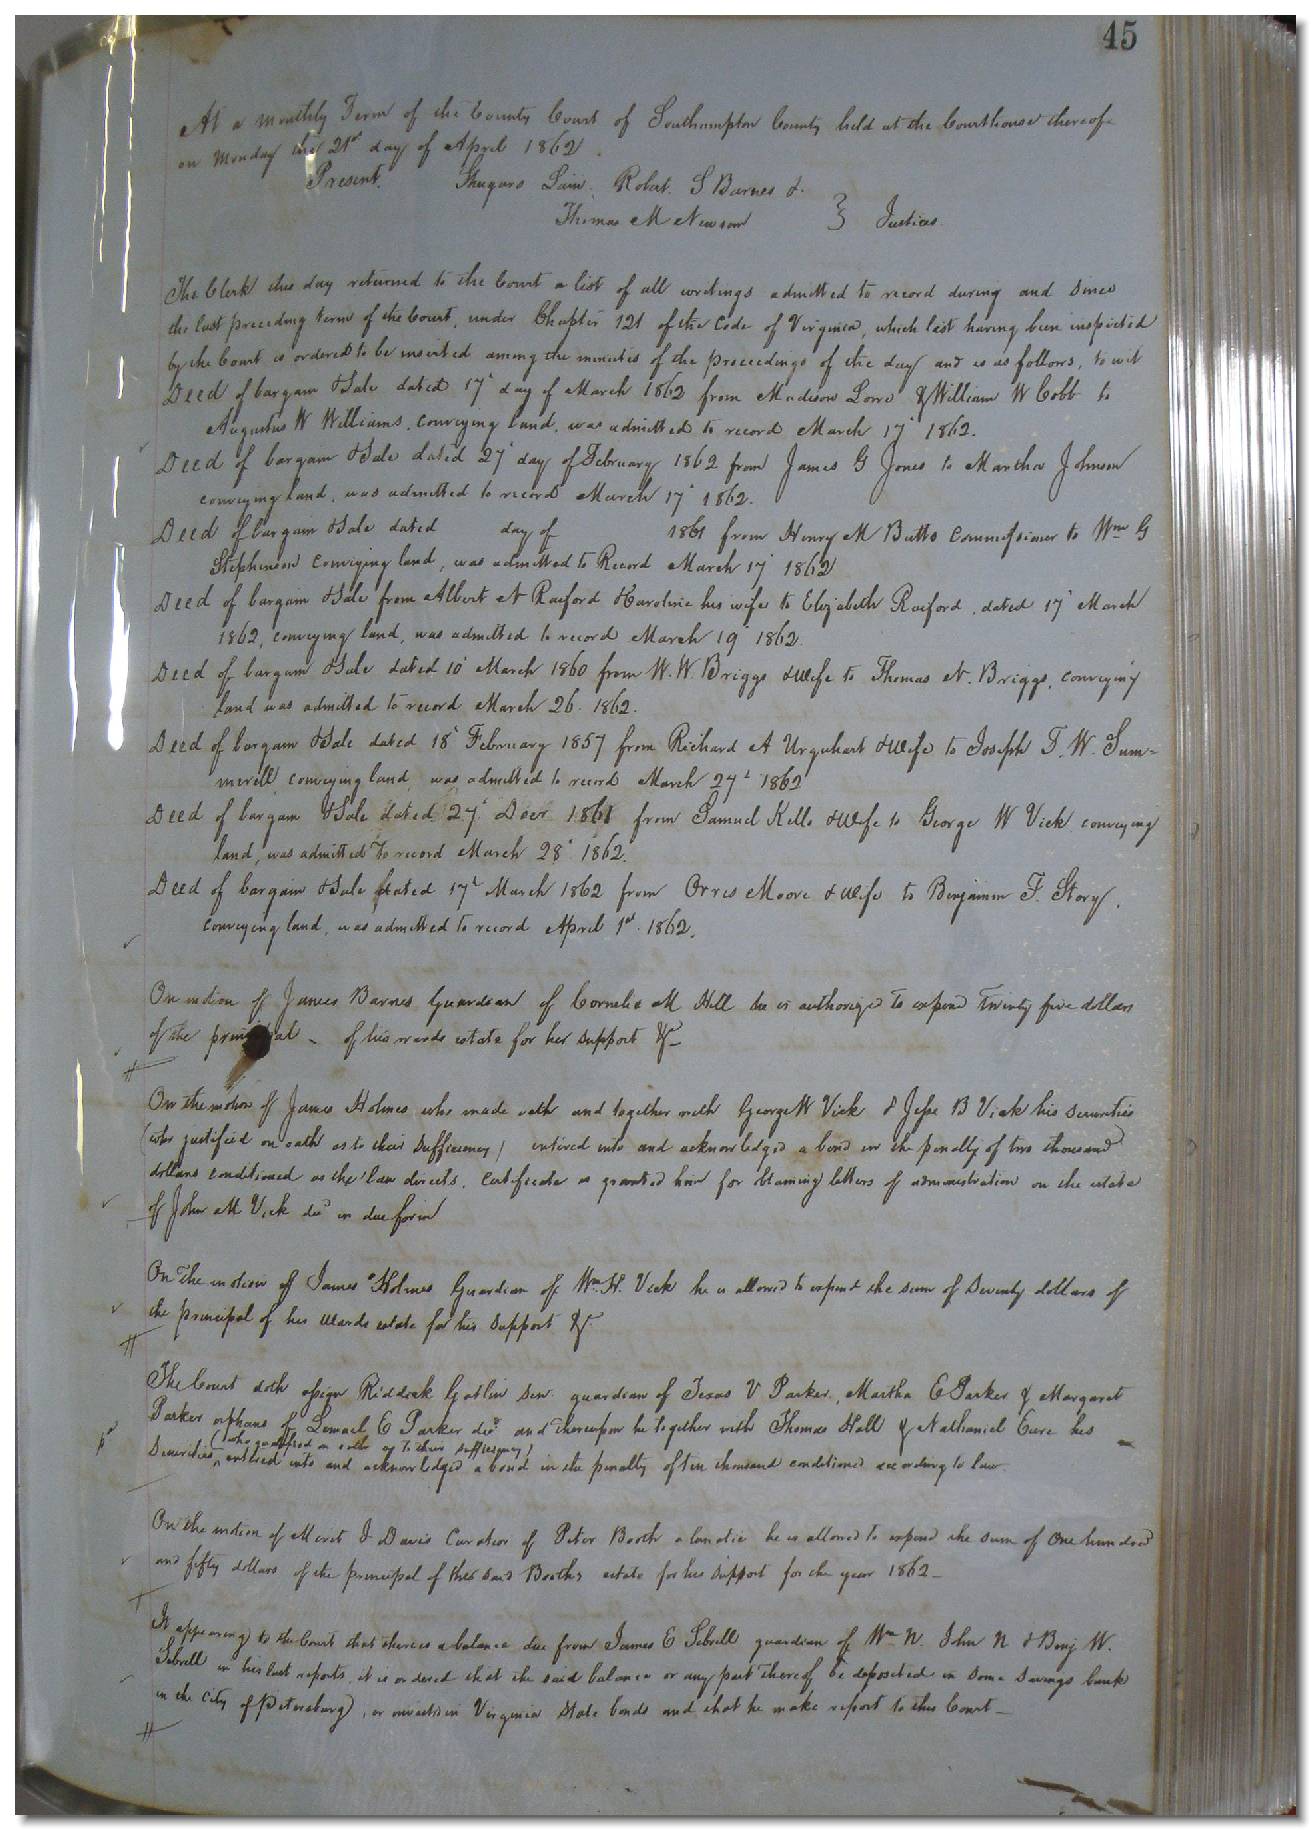 45
At a monthly Term of the County Court of Southampton County held at the Courthouse thereof
on Monday the 21st day of April 1862
Present. Lain. Robert. S Barnes &
Thomas M Newsom } Justices.
The Clerk this day returned to the Court a list of all writings admitted to record during and since
the last preceding term of the Court, under Chapter 121 of the Code of Virginia, which list having been inspected
by the Court is ordered to be inserted among the minutes of the proceedings of the day and is as follows, to wit
Deed of bargain & Sale dated 17 day of March 1862 from Madison Lowe & William W Cobb to
Augustus W Williams. conveying land. was admitted to record March 17 1862.
Deed of bargain & Sale dated 27 day of February 1862 from James G Jones to Martha Johnson
conveying land, was admitted to record March 17 1862.
Deed of bargain & Sale dated day of 1861 from Henry M Butts Commissioner to Wm G
Stephenson conveying land, was admitted to Record March 17 1862
Deed of bargain & Sale from Albert N Raiford & Caroline his wife to Elizabeth Raiford, dated 17 March
1862, conveying land, was admitted to record March 19 1862
Deed of bargain & Sale dated 10 March 1860 from W. W. Briggs & Wife to Thomas N. Briggs, conveying
land was admitted to record March 26. 1862.
Deed of bargain & Sale dated 18 February 1857 from Richard A Urquhart & Wife to Joseph T. W. Sum-
merill, conveying land, was admitted to record March 27t 1862
Deed of bargain & Sale dated 27 Decr 1861 from Samuel Kello & Wife to George W Vick conveying
land, was admitted to record March 28 1862.
Deed of bargain & Sale dated 17t March 1862 from Orris Moore & Wife to Benjamin F. Story.
conveying land, was admitted to record April 1st. 1862.
On motion of James Barnes Guardian of Cornelia M Hill he is authorized to expend Twenty five dollars
of the principal - of his wards estate for her support &c
On the motion of James Holmes who made oath and together with George W Vick & Jesse B Vick his securities
(who justified on oath as to their sufficiency) entered into and acknowledged a bond in the penalty of two thousand
dollars conditioned as the law directs. Certificate is granted him for obtaining letters of administration on the estate
of John M Vick decd in due form
On the motion of James Holmes Guardian of Wm. H. Vick he is allowed to expend the sum of Seventy dollars of
the principal of his wards estate for his support &c.
The Court doth assign Riddick Gatlin Sen. guardian of Texas V Parker, Martha E Parker & Margaret
Parker orphans of Lemuel E Parker decd and thereupon he together with Thomas Hall & Nathaniel Eure his
(who justified on oath as to their sufficiency)
Securities, entered into and acknowledged a bond in the penalty of ten thousand conditioned according to law.
On the motion of J Davis Curator of Peter Booth a lunatic he is allowed to expend the sum of One hundred
and fifty dollars of the principal of the said Booths estate for his support for the year 1862-
It appearing to the Court that there is a balance due from James E Sebrell guardian of Wm N. John N & Benj W.
Sebrell in his last reports, it is ordered that the said balance or any part thereof be deposited in some Savings bank
in the City of Petersburg, or in Virginia State bonds and that he make report to this Court-